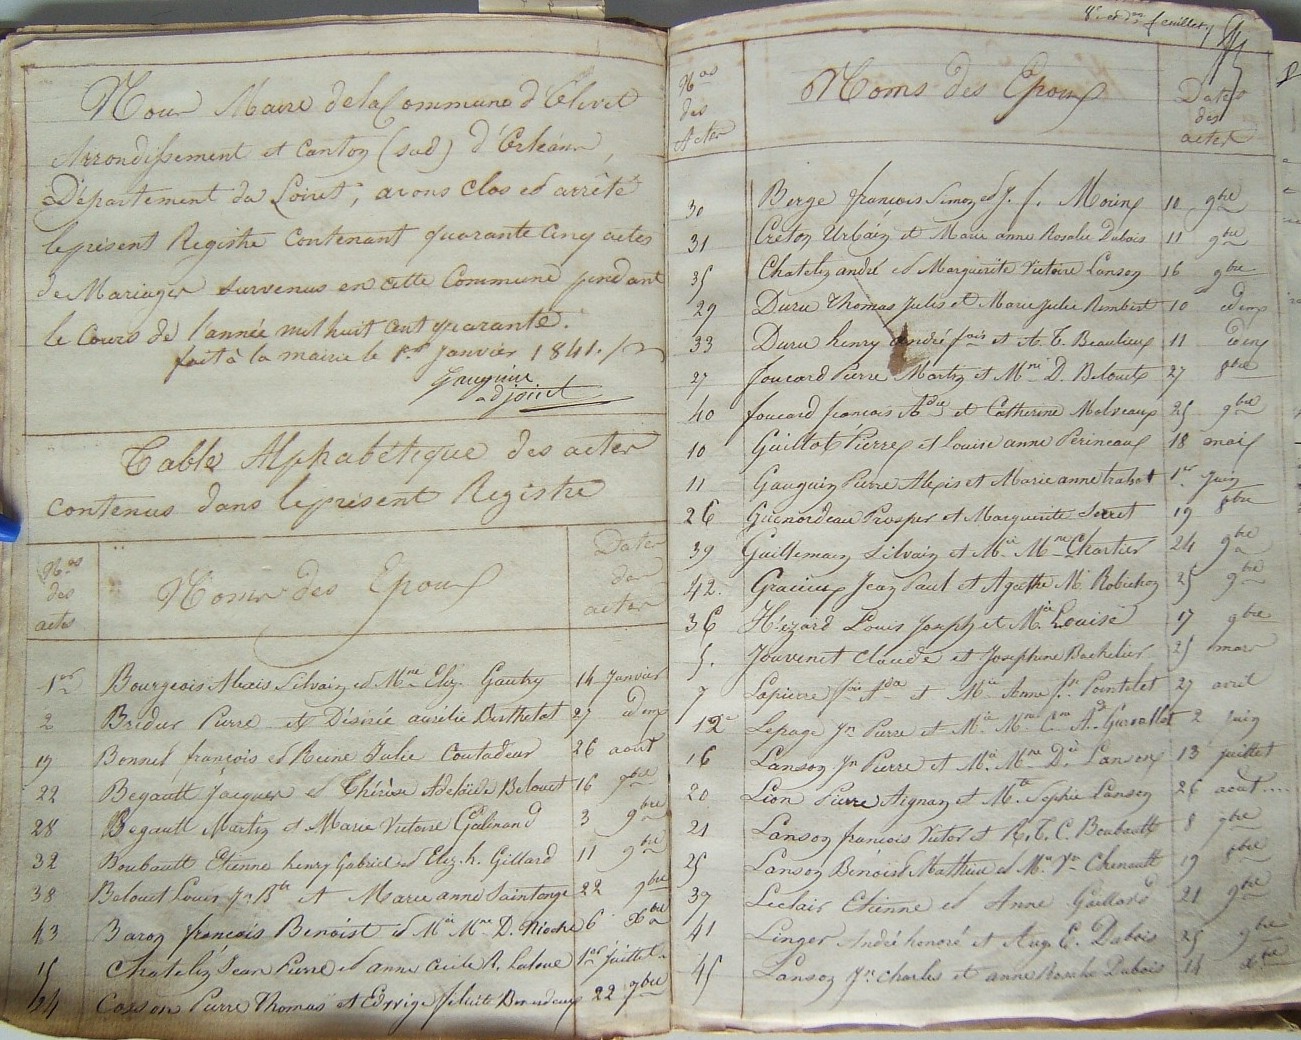 Nous Maire de la Commune d'Olivet
Arrondissement et canton (sud) d'Orléans,
Département du Loiret, avons clos et arrêté
le présent Registre contenant quarante cinq actes
de Mariages survenus en cette Commune pendant
le cours de l'année mil huit cent quarante.
fait à la mairie le 1er Janvier 1841.
adjoint
Table Alphabétique des actes
contenus dans le présent Registre
Nos des actes
Noms des Epoux
Dates des actes
1er Bourgeois Alexis Silvain et Mne Eliz. Gautry 14 Janvier
2 Bridur Pierre et Désirée aurélie Berthelot 27 idem
19 Bonnel françois et Reine Julie Coutadeur 26 août
22 Begault Jacques et Thérèse Adelaïde Belouet 16 9bre
28 Begault Martin et Marie Victoire Galinand 3 9bre
32 Boubault Etienne henry Gabriel et Eliz. h. Gillard 11 9bre
38 Belouet Louis Jn Bte et Marie anne Saintonge 22 9bre
43 Baron françois Benoist et Mie Mne D. Rioche 6 Xbre
15 Chatelin Jean Pierre et anne Cécile R. Laloue 1er Juillet
24 Cosson Pierre Thomas et Edwige felicité 22 7bre
8e et der feuillet
Nos des Actes
Noms des Epoux
Dates des actes
30 Berge françois Simon et J. f. Morin 10 9bre
31 Creton Urbain et Marie anne Rosalie Dubois 11 9bre
35 Chatelin andré et Marguerite Victoire Lanson 16 9bre
29 Duru Thomas Jules et Marie Julie Rembert 10 idem
33 Duru henry André fois et A. T. Beaulieu 11 idem
27 foucard Pierre Martin et Mrie D. Belouet 27 8bre
40 foucard françois Adre et Catherine Malveaux 25 9bre
10 Guillot Pierre et Louise anne Perineau 18 mai
11 Gauguin Pierre Alexis et Marie anne trabot 1er Juin
26 Guenordeau Prosper et Marguerite Serret 19 8bre
39 Guillemain Silvain et Mie Mne Chartier 24 9bre
42. Gracieux Jean Paul et Agathe M. Robichon 25 9bre
36 Hézard Louis Joseph et Mie Louise 17 9bre
5. Jouvenet Claude et Josephine Bachelier 25 mars
7 Lapierre fois et Mie Anne Pointelet 27 avril
12 Lepage Jn Pierre et Mie 2 Juin
16 Lanson Jn Pierre et Mie Mne D. Lanson 13 Juillet
20 Lion Pierre Aignan et Mie Sophie Lanson 26 août....
21 Lanson françois Victor et R. T. C. Boubault 8 7bre
25 Lanson Benoist Mathieu et Mie Vre Chenault 19 8bre
37 Leclair Etienne et Anne Gaillard 21 9bre
41 Linger André honoré et Aug. E. Dabois 25 9bre
45 Lanson Jn Charles et anne Rosalie Dubois 14 Xbre